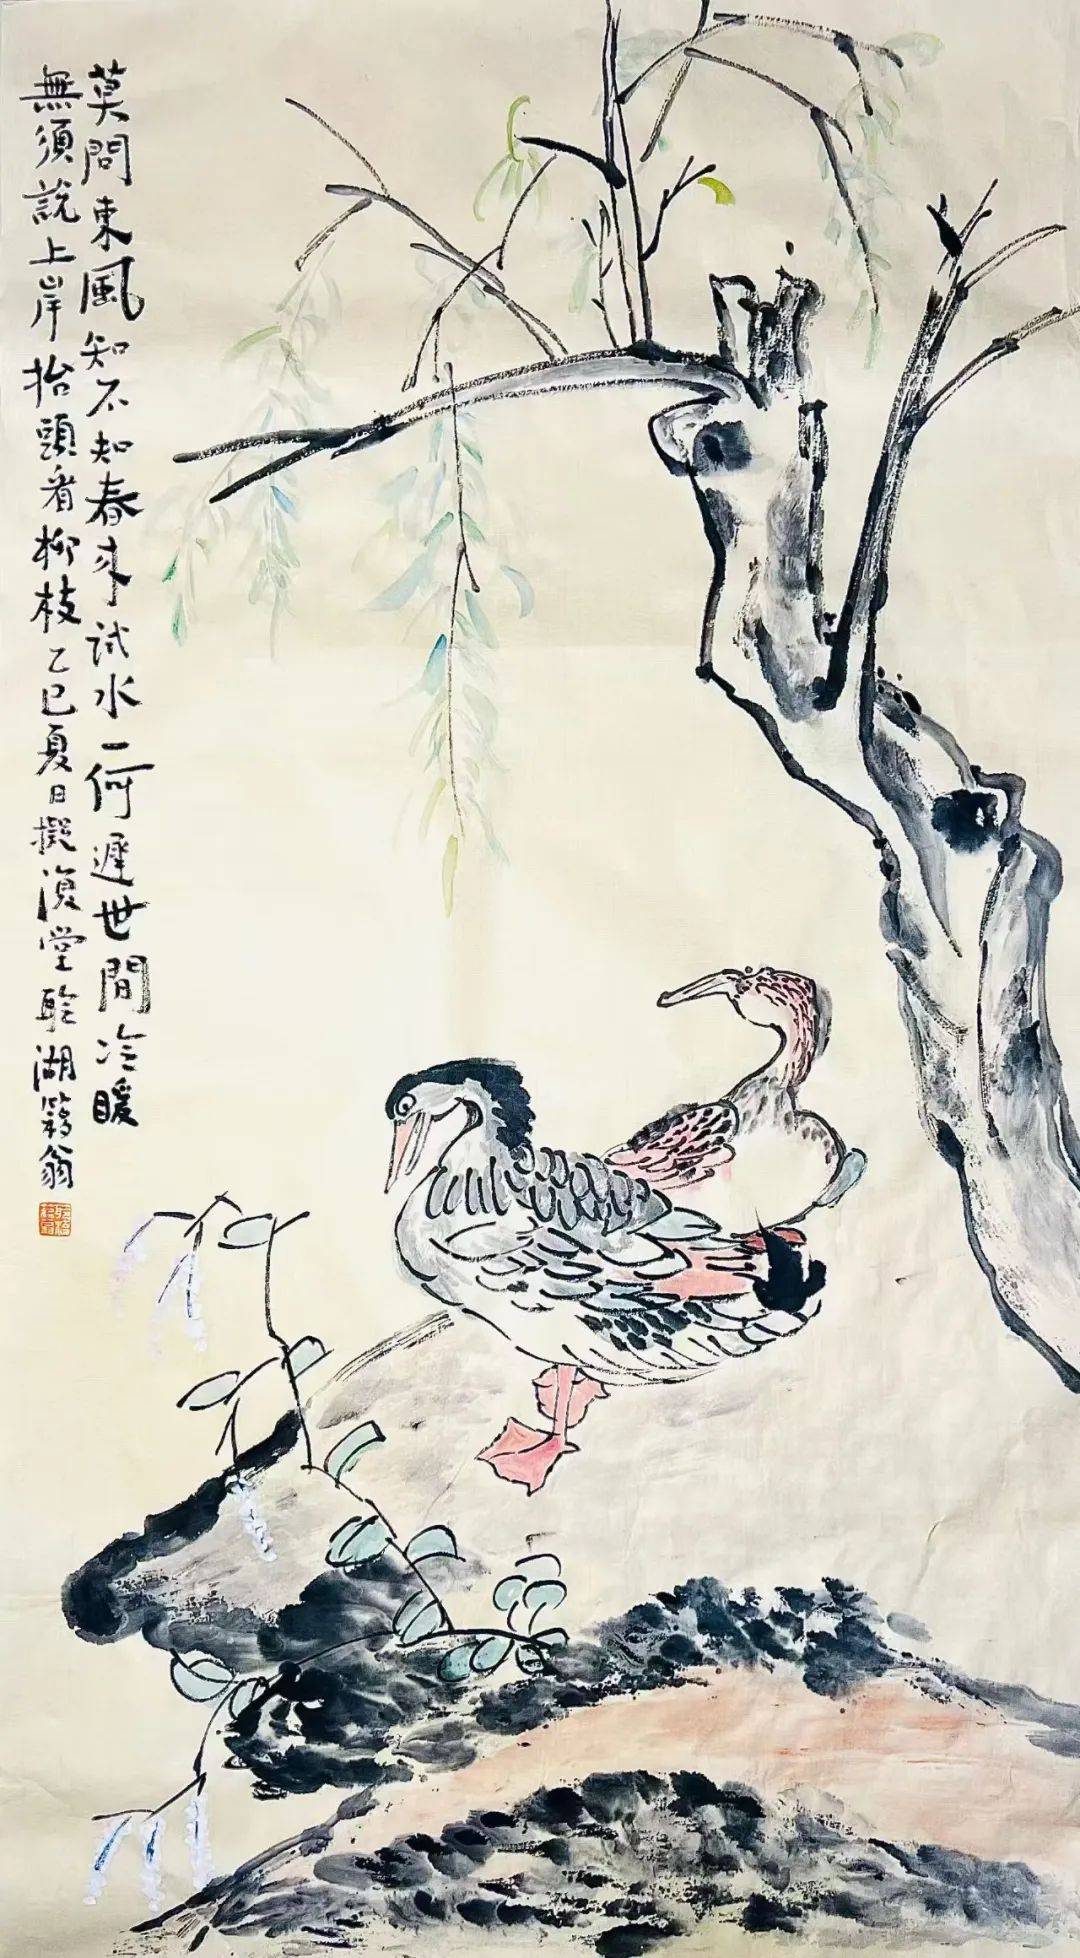 莫問東風知不知春來試水一何遲世間冷暖
無須說上岸抬頭看柳枝乙巳夏日擬復堂聆湖翁